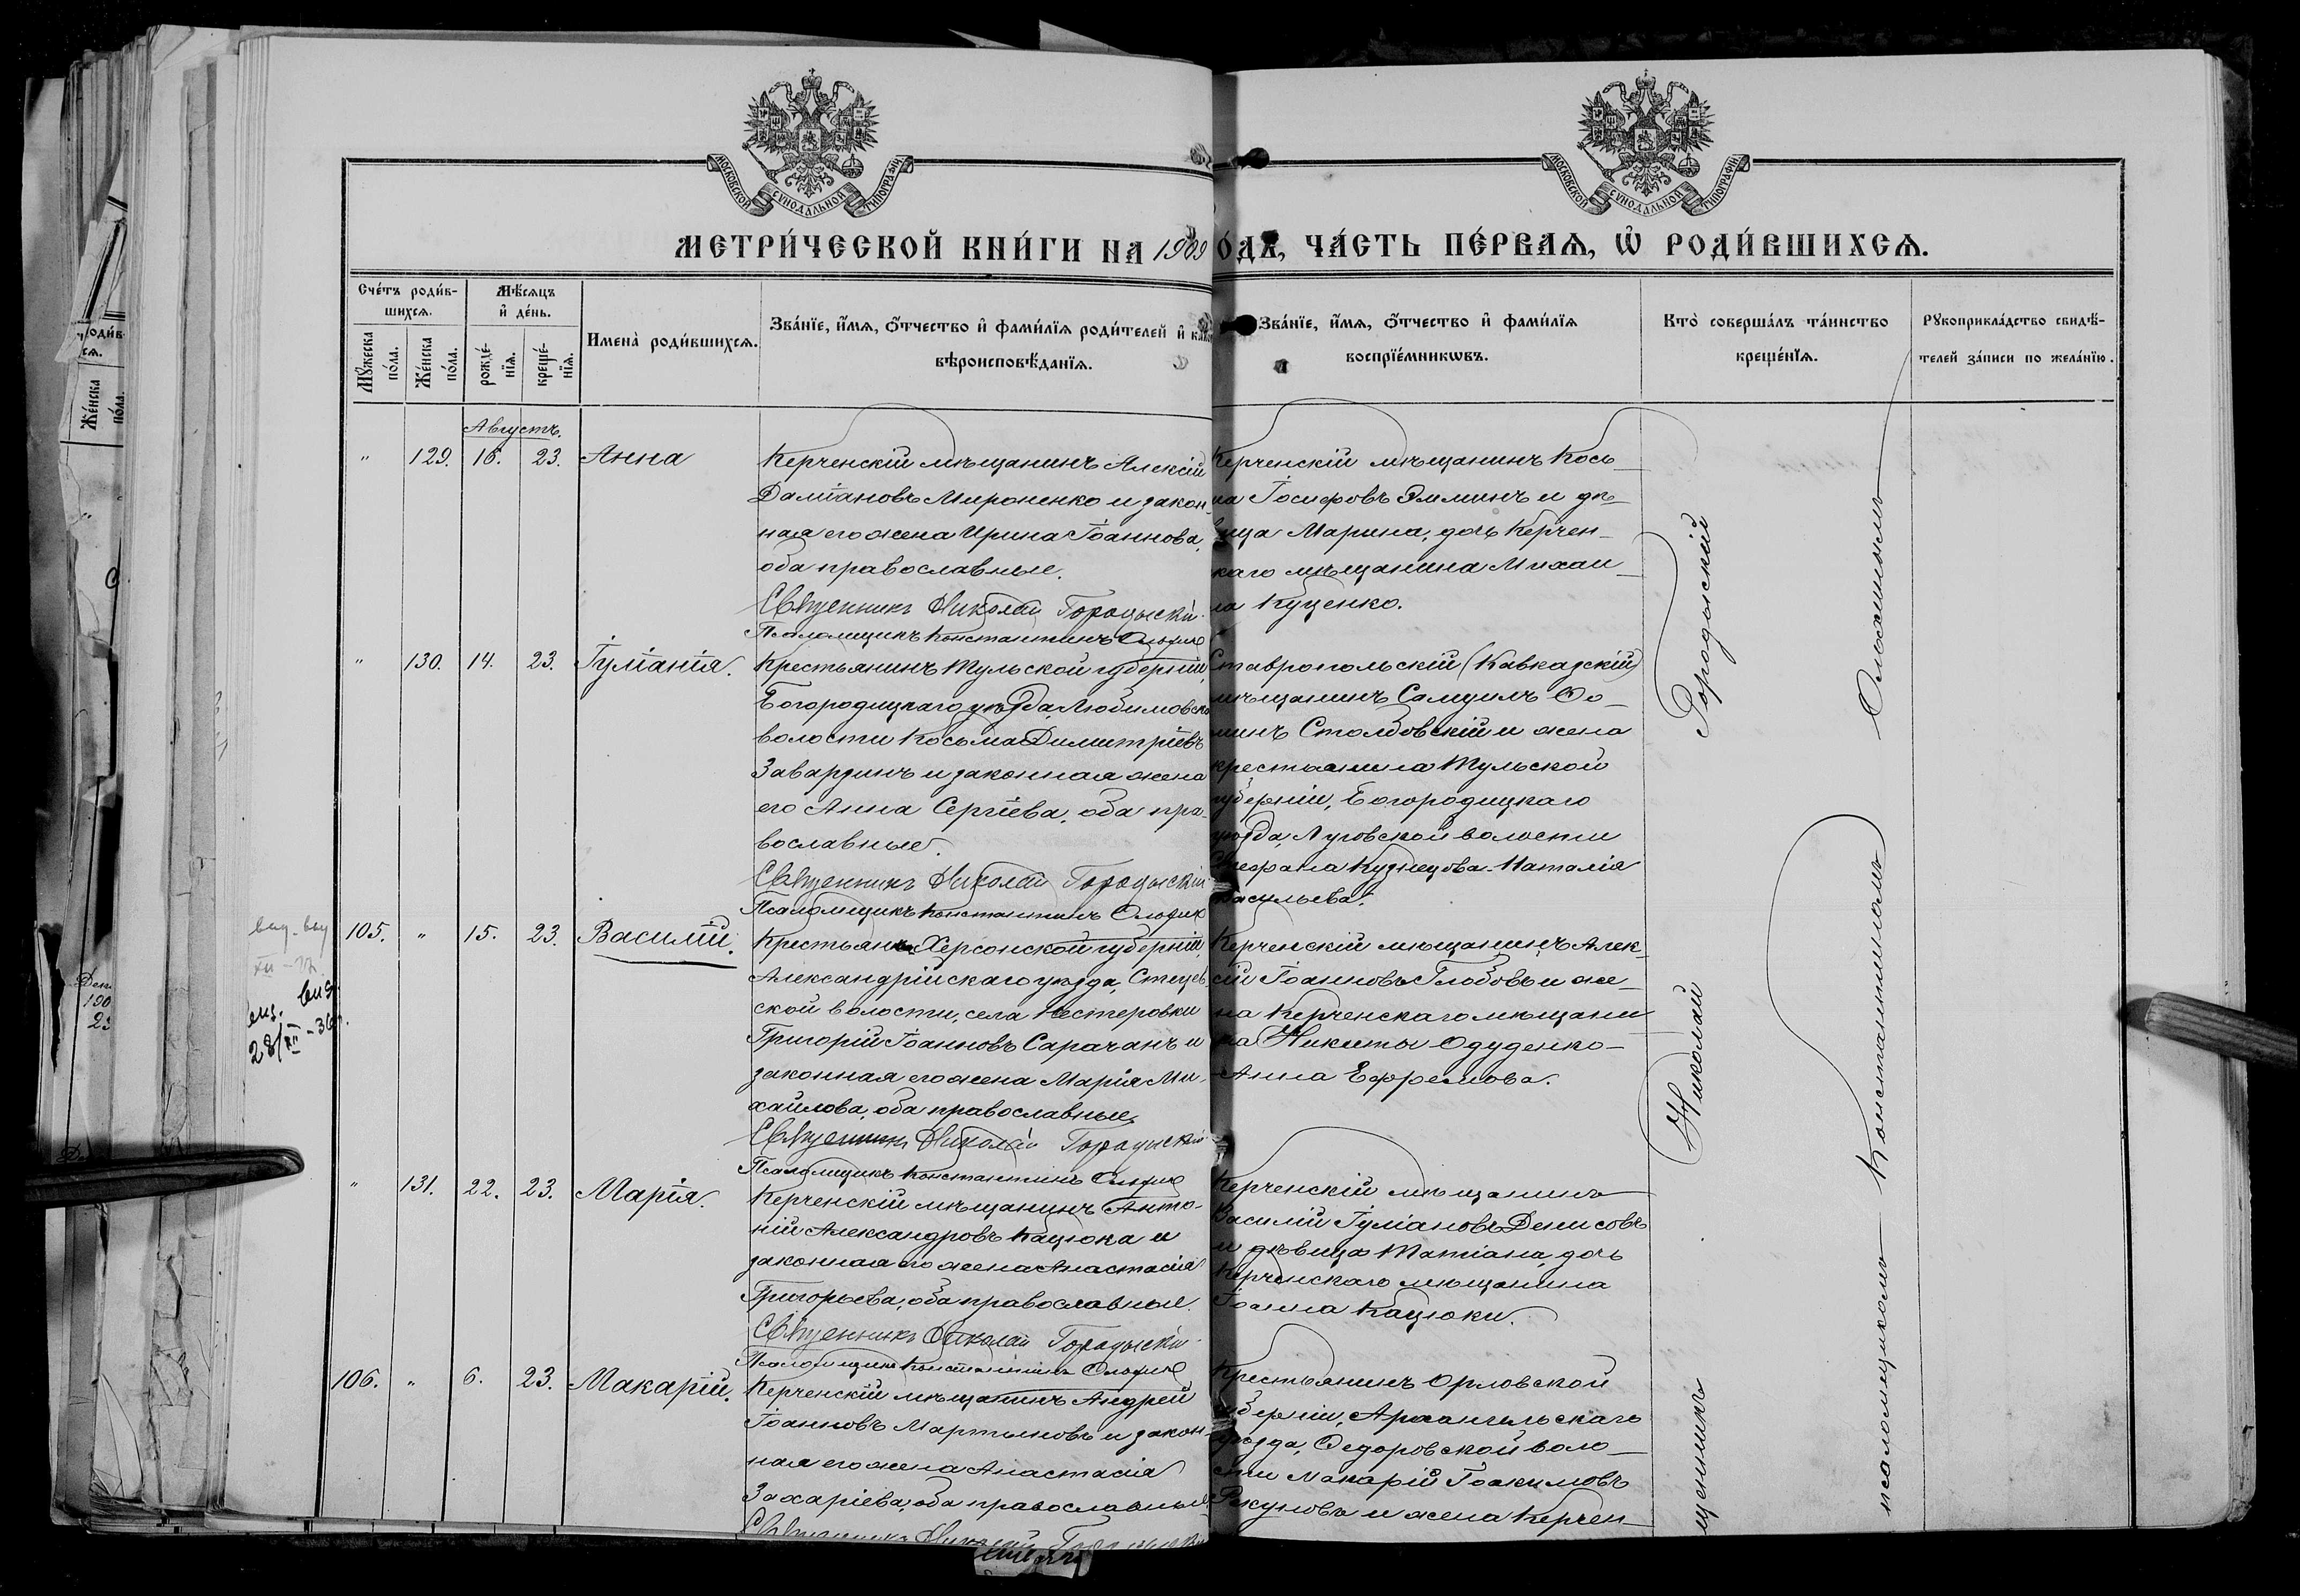 МОСКОВСКОЙ СѴНОДАЛЬНОЙ ТИПОГРАФІИ
МОСКОВСКОЙ СѴНОДАЛЬНОЙ ТИПОГРАФІИ
МЕТРИ́ЧЕСКОЙ КНИ́ГИ НА 1909
ОДꙊ, ЧА́СТЬ ПЕ́РВАѦ, Ѡ҆ РОДИ́ВШИХСѦ.
Сче́тъ роди́в-
шихсѧ.
Мѣ́сѧцъ
и҆ де́нь.
Мꙋ́жеска по́ла.
Же́нска по́ла.
рожде́-
нїѧ.
креще́-
нїѧ.
Имена̀ роди́вшихсѧ.
Зва́нїе, и҆́мѧ, ѻ҆́тчество и҆ фами́лїѧ роди́телей и҆
вѣроисповѣ́данїѧ.
Зва́нїе, и҆́мѧ, ѻ҆́тчество и҆ фами́лїѧ
воспрїе́мникѡвъ.
Кто̀ соверша́лъ та́инство
креще́нїѧ.
Рꙋкоприкла́дство свидѣ́-
телей за́писи по жела́нїю.
Августъ.
" 129. 16. 23. Анна
Керченскій мѣщанинъ Алексій
Даміановъ Мироненко и закон-
ная его жена Ирина Іоаннова,
оба православные.
Священникъ Николай Городыскій
Псаломщикъ Константинъ
Керченскій мѣщанинъ Кось
ма Іосифовъ Эмминъ и дѣ-
вица Марина, дочь Керчен-
каго мѣщанина Михаи-
ла Куценко.
" 130. 14. 23. Іуліанія.
Крестьянинъ Тульской губерніи,
Богородицкаго уѣзда, Любимовско
волости Косьма Димитріевъ
Завардинъ и законная жена
его Анна Сергіева, оба пра-
вославные.
Священникъ Николай Городыскій
Псаломщикъ Константинъ
Ставропольскій (Кавказскій)
мѣщанинъ Самуилъ Ѳо-
минъ Столбовскій и жена
крестьянина Тульской
губерніи, Богородицкаго
уѣзда, Луговской волости
Стефана Кузнецова Наталія
Васильева.
105. " 15. 23. Василій.
28/XII - 36 г.
Херсонской губерніи,
Александрійскаго уѣзда, Стецов-
ской волости, села Нестеровки
Григорій Іоанновъ Сарачанъ и
законная его жена Марія Ми-
хайлова, оба православные
Священникъ Николай Городыскій
Псаломщикъ Константинъ
Керченскій мѣщанинъ Алек-
сій Іоанновъ Глобовъ и же-
на Керченскаго мѣщани
на Никиты Одуденко-
Анна Ефремова.
" 131. 22. 23. Марія.
Керченскій мѣщанинъ Анто-
ній Александровъ Кацюка и
законная его жена Анастасія
Григорьева, оба православные.
Священникъ Николай Городыскій
Псаломщикъ Константинъ
Керченскій мѣщанинъ
Василій Іуліановъ Денисовъ
и дѣвица Татіана, дочь
Керченскаго мѣщанина
Іоанна Кацюки.
106. " 6. 23. Макарій.
Керченскій мѣщанинъ Андрей
Іоанновъ Мартыновъ и закон-
ная его жена Анастасія
Захаріева, оба православные.
Крестьянинъ Орловской
губерніи, Архангельскаго
уѣзда, Ѳедоровской воло-
сти Макарій Іоакимовъ
и жена Керчен-
щенникъ Николай Городыскій
псаломщикомъ Константиномъ